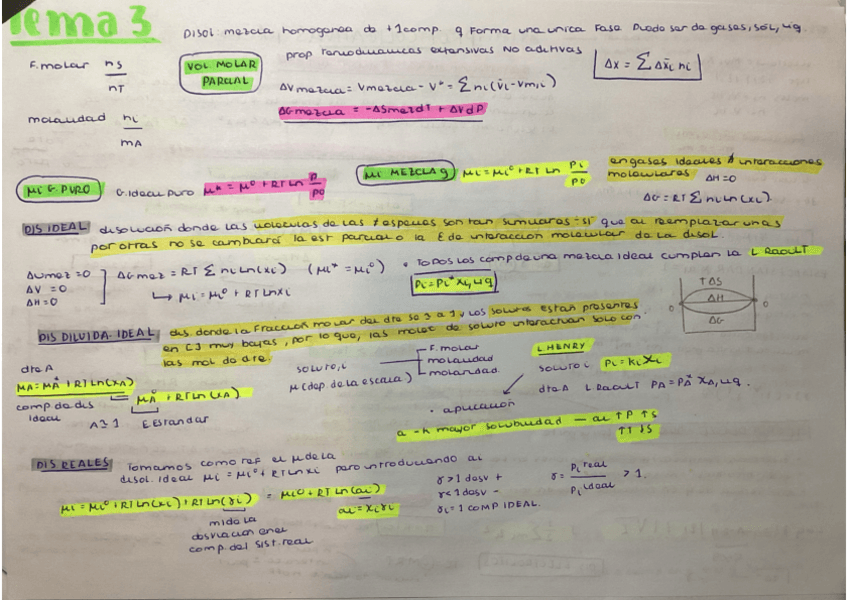 Tema 3
Disol: mezcla homogenea do +1comp. q forma una unica fase. Puede ser de gases, sol, liq.
prop termodinamicas extensivas NO aditivas
ΔX = ∑ Δx̄i ni
F.molar ns/nT
VOL MOLAR PARCIAL
ΔVmezcla = Vmezcla - V* = ∑ni(v̄i - Vm,i)
ΔGmezcla = -ΔSmezdT + ΔVdP
molalidad ni/mA
μi G. PURO
G.Ideal Puro μ* = μ° + RT Ln P/P0
μi MEZCLA g
μi = μi° + RT Ln Pi/P0
en gases ideales ∄ interacciones
moleculares ΔH=0
ΔG = RT ∑ ni Ln(xi)
DIS IDEAL
disolución donde las moleculas de las ≠ especies son tan similares = sí que al reemplazar unas
por otras no se cambiará la est parcial o la E de interacción molecular de la disol.
ΔUmez = 0
ΔV = 0
ΔH = 0
ΔGmez = RT ∑ ni Ln(xi) (μi* = μi°)
↳ μi = μi° + RT Ln xi
• Todos los comp de una mezcla ideal cumplen la L RAOULT
Pi = Pi* xi,liq
TΔS
ΔH
ΔG
0
0
DIS DILUIDA IDEAL
dis. donde la fracción molar del dte se ≈ a 1 y los solutos están presentes
en [] muy bajas, por lo que, las molec de soluto interactúan solo con
las mol do dte.
dte A
μA = μA* + RT Ln(xA)
comp de dis
ideal
μA° + RT Ln(xA)
A≈1 E Estandar
soluto, i
μ (dep de la escala)
F. molar
molalidad
molaridad.
L HENRY
soluto i. Pi = ki xi
dte A L RAOULT PA = PA* xA,liq.
• aplicación
a -k mayor solubilidad — al ↑P ↑S
↑T ↓S
DIS REALES
Tomamos como ref el μ de la
disol. ideal μi = μi° + RT Ln xi pero introduciendo ai
μi = μi° + RT Ln(xi) + RT Ln(γi) = μi° + RT Ln(ai)
ai = xi γi
mide la
desviación en el
comp. del sist. real
γ>1 desv +
γ<1 desv -
γi = 1 COMP IDEAL.
γ = Pi real/Pi ideal > 1.